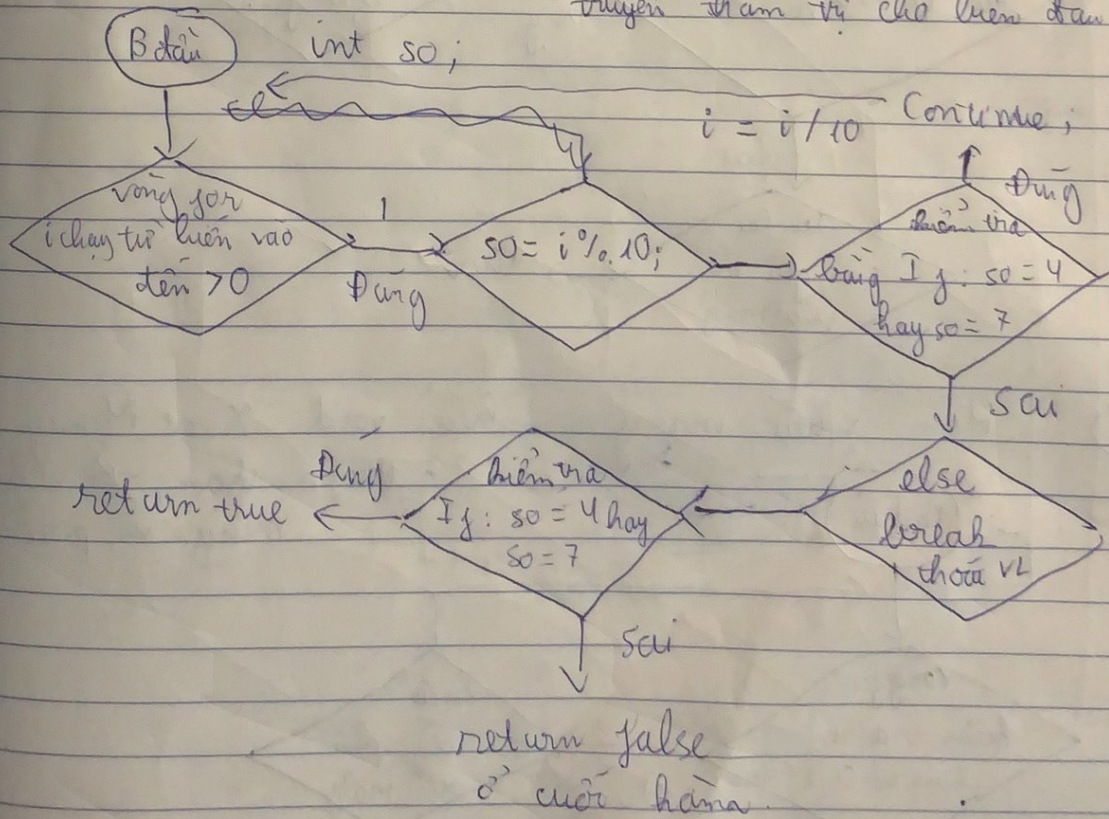 truyền tham trị cho biến đầu
Bđầu
int so;
Continue;
i = i / 10
Đúng
vòng for
i chạy từ biến vào
đến > 0
1
Đúng
so = i % 10;
kiểm tra
bằng If: so = 4
hay so = 7
Sai
else
break
thoát VL
kiểm tra
If: so = 4 hay
so = 7
Đúng
return true
Sai
return false
ở cuối hàm.